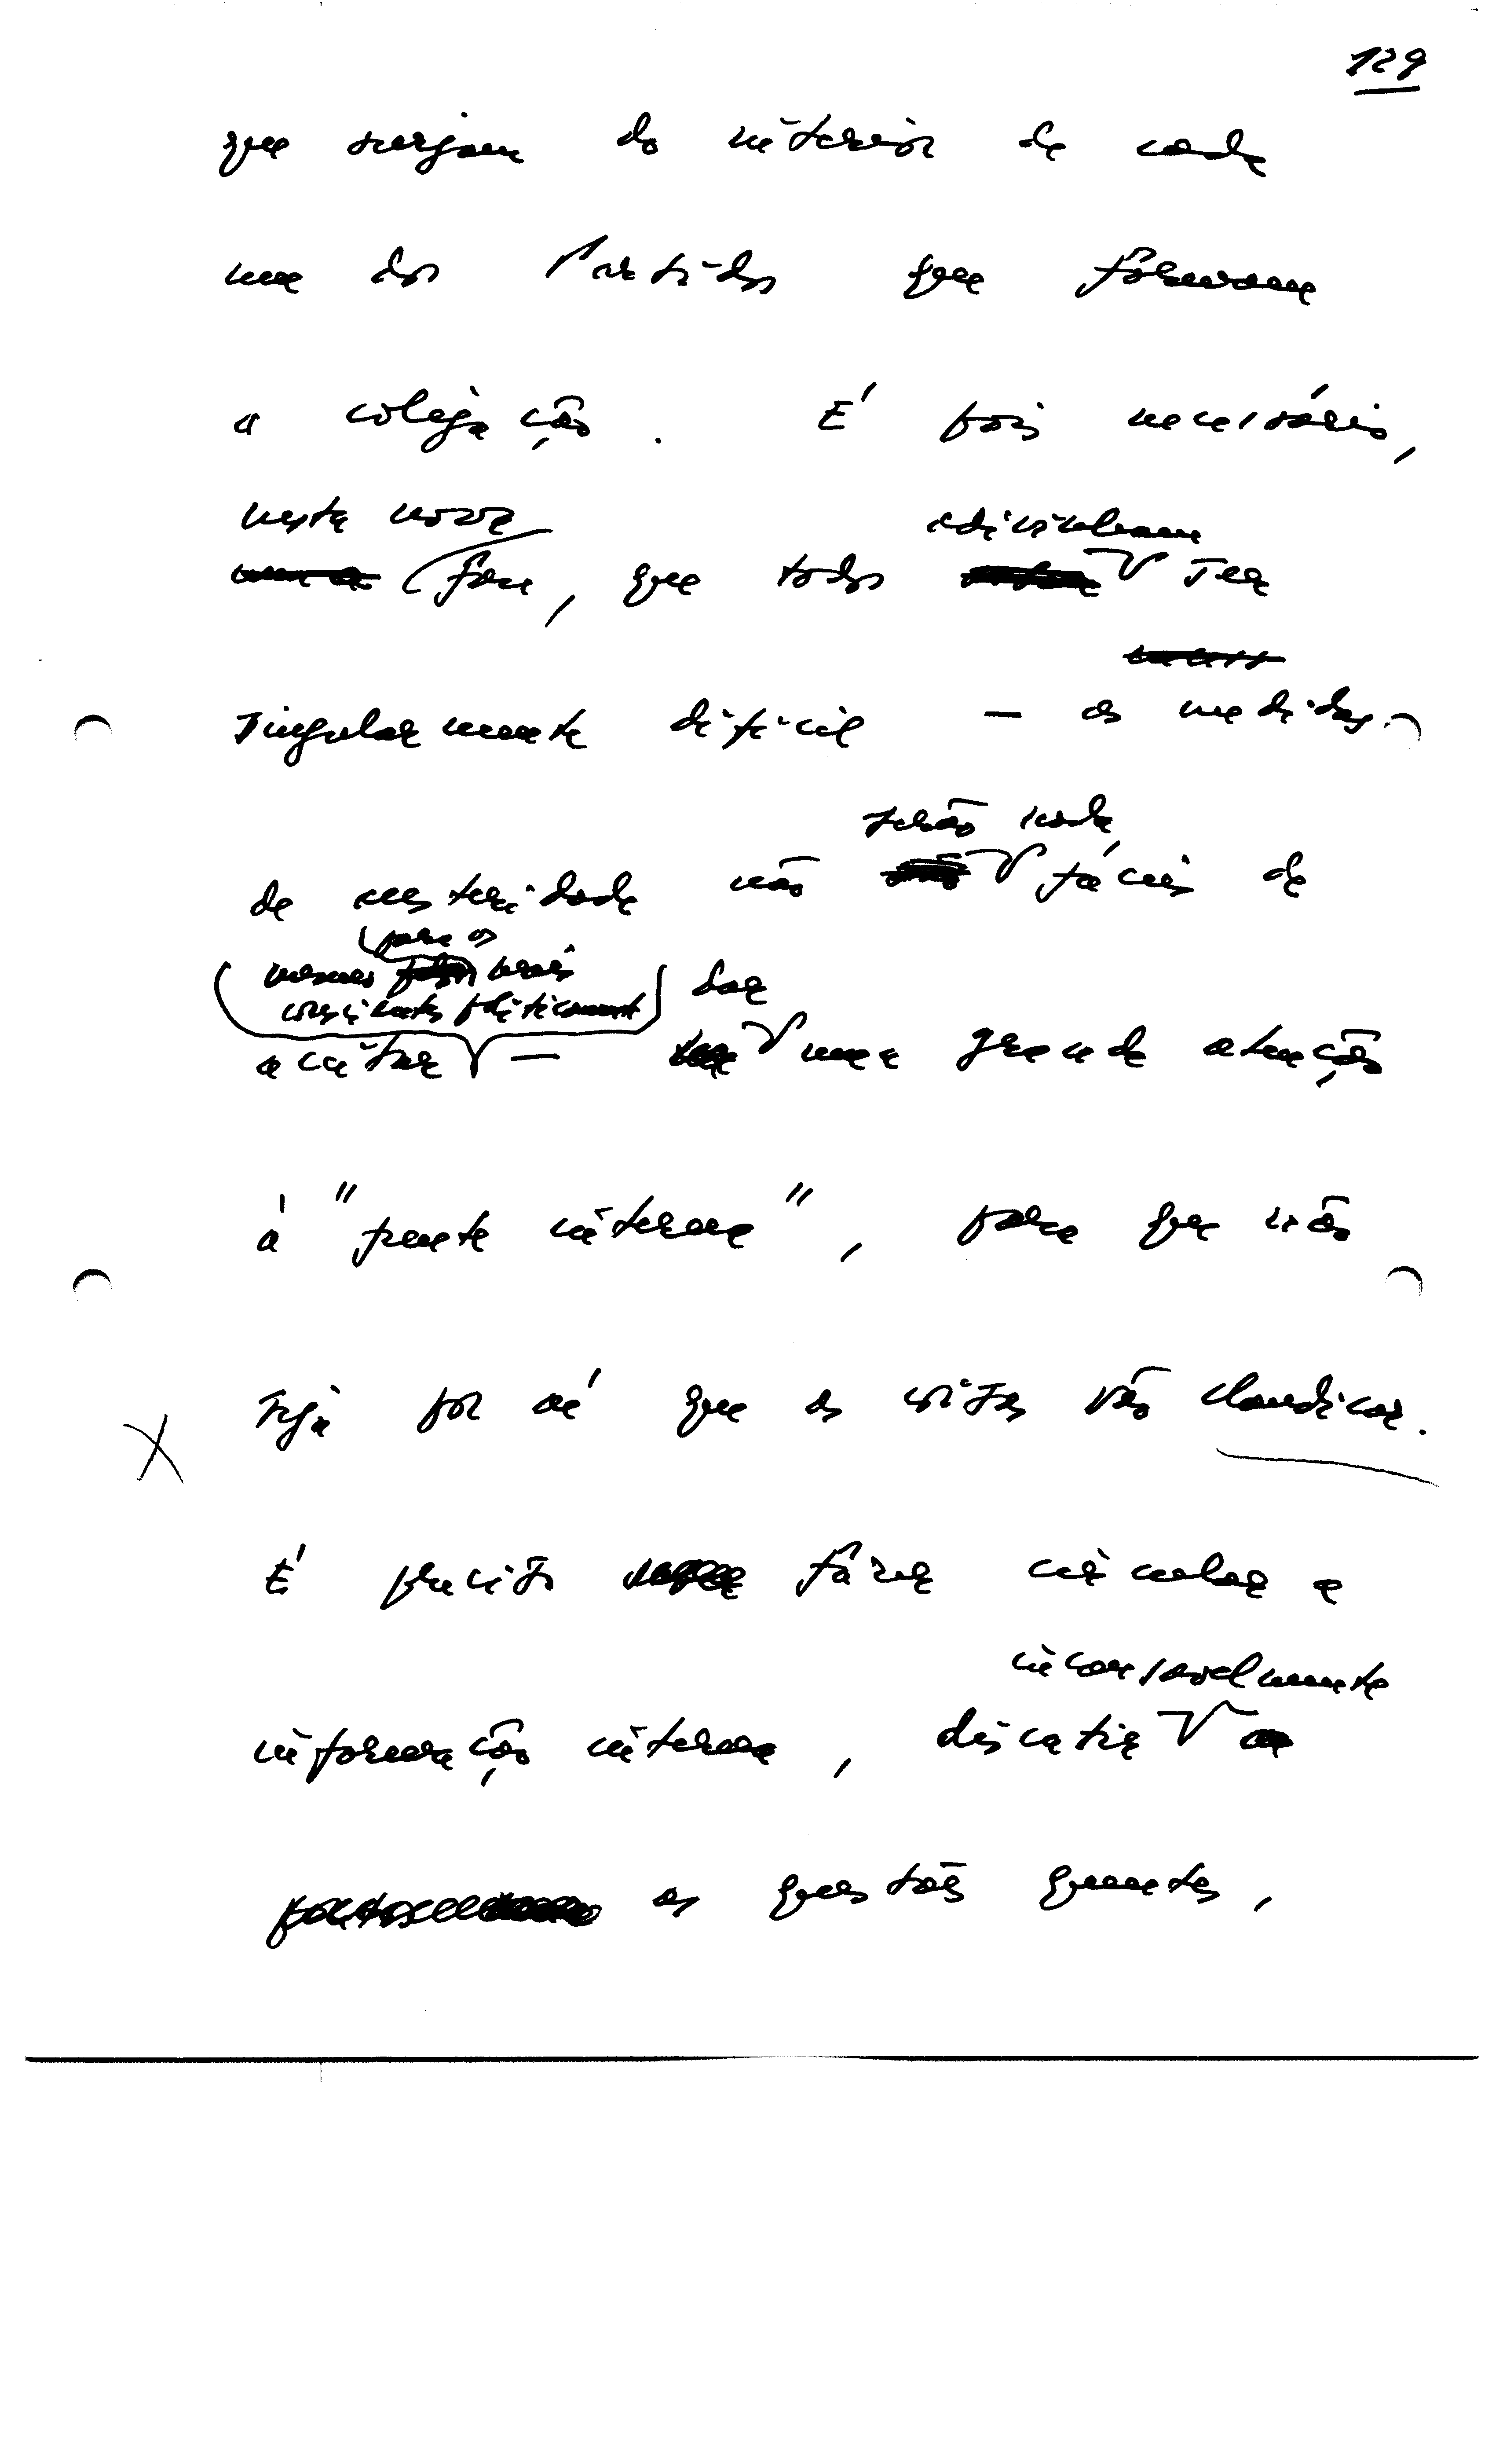 129
que surjam do interior de cada
um dos Partidos que formam
a coligação. É pois necessário,
nesta nova adivinham
fase, que todos ser
singularmente difícil — as medidas
serão nada
de austeridade não fáceis de
para os
menos
conscientes politicamente dar
aceitar — uma grande atenção
à "frente interna", para que não
seja por aí que as coisas vão claudicar.
É preciso fazer circular a
incansavelmente
informação interna, discutir
as questões quentes,